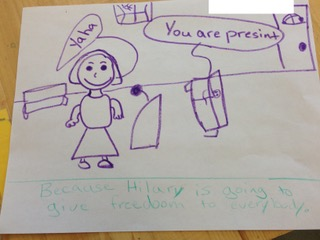 Yaha
You are presint
Because Hilary is going to
give freedoom to everybody.